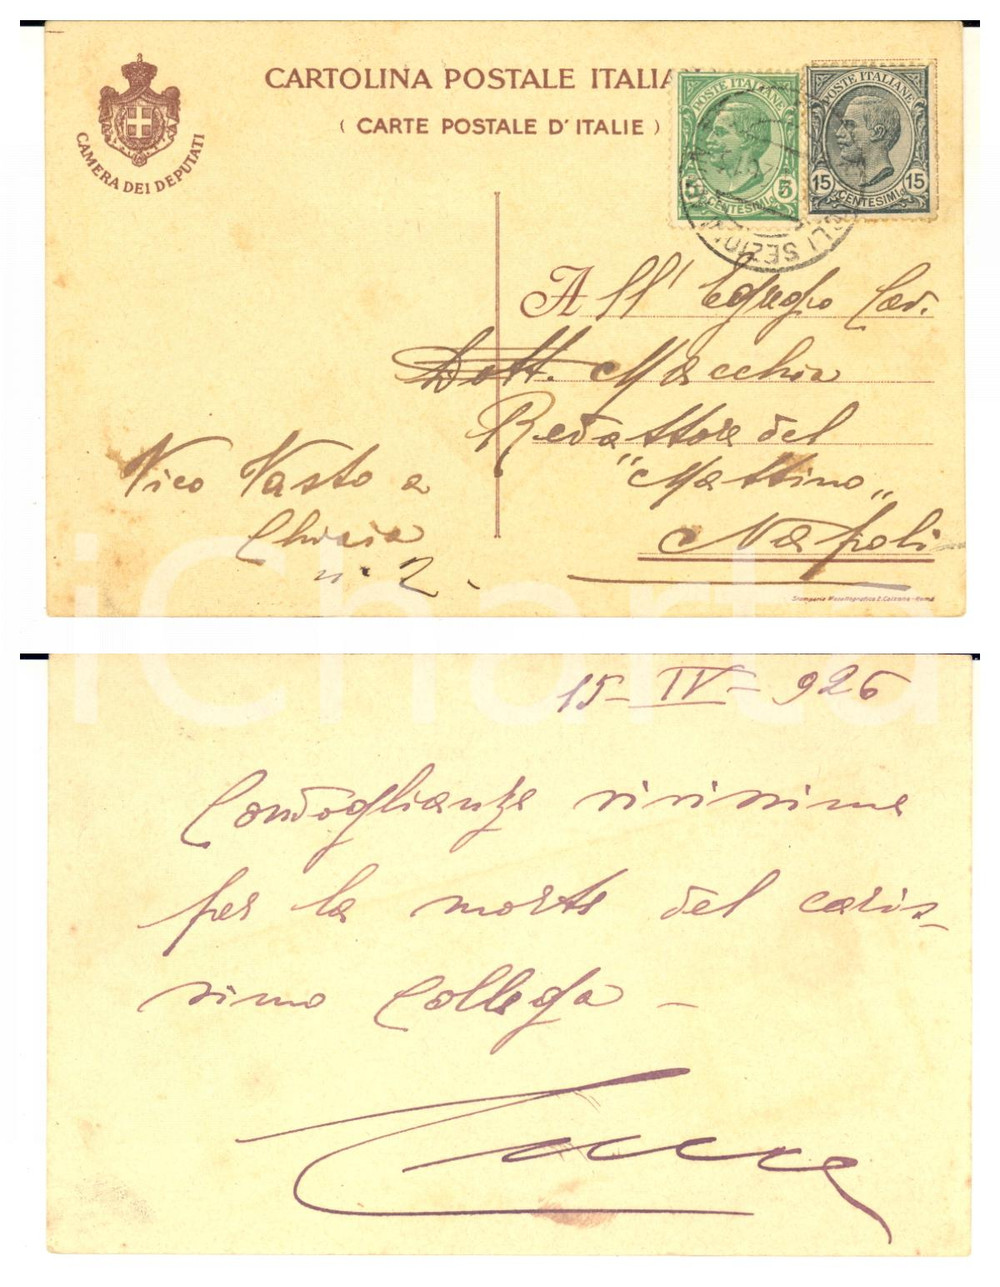 CARTOLINA POSTALE ITALIA
( CARTE POSTALE D'ITALIE )
CAMERA DEI DEPUTATI
POSTE ITALIANE
5 5
CENTESIMI
POSTE ITALIANE
15 15
CENTESIMI
LI SEZIONE
All' Egregio Cav.
Dott. Macchia
Redattore del
"Mattino"
Napoli
Vico Vasto a
Chiaia
n. 2.
Stamperia Miscellografica E. Calzone - Roma
iCharta
15-IV-926
Condoglianze vivissime
per la morte del caris-
simo Collega -